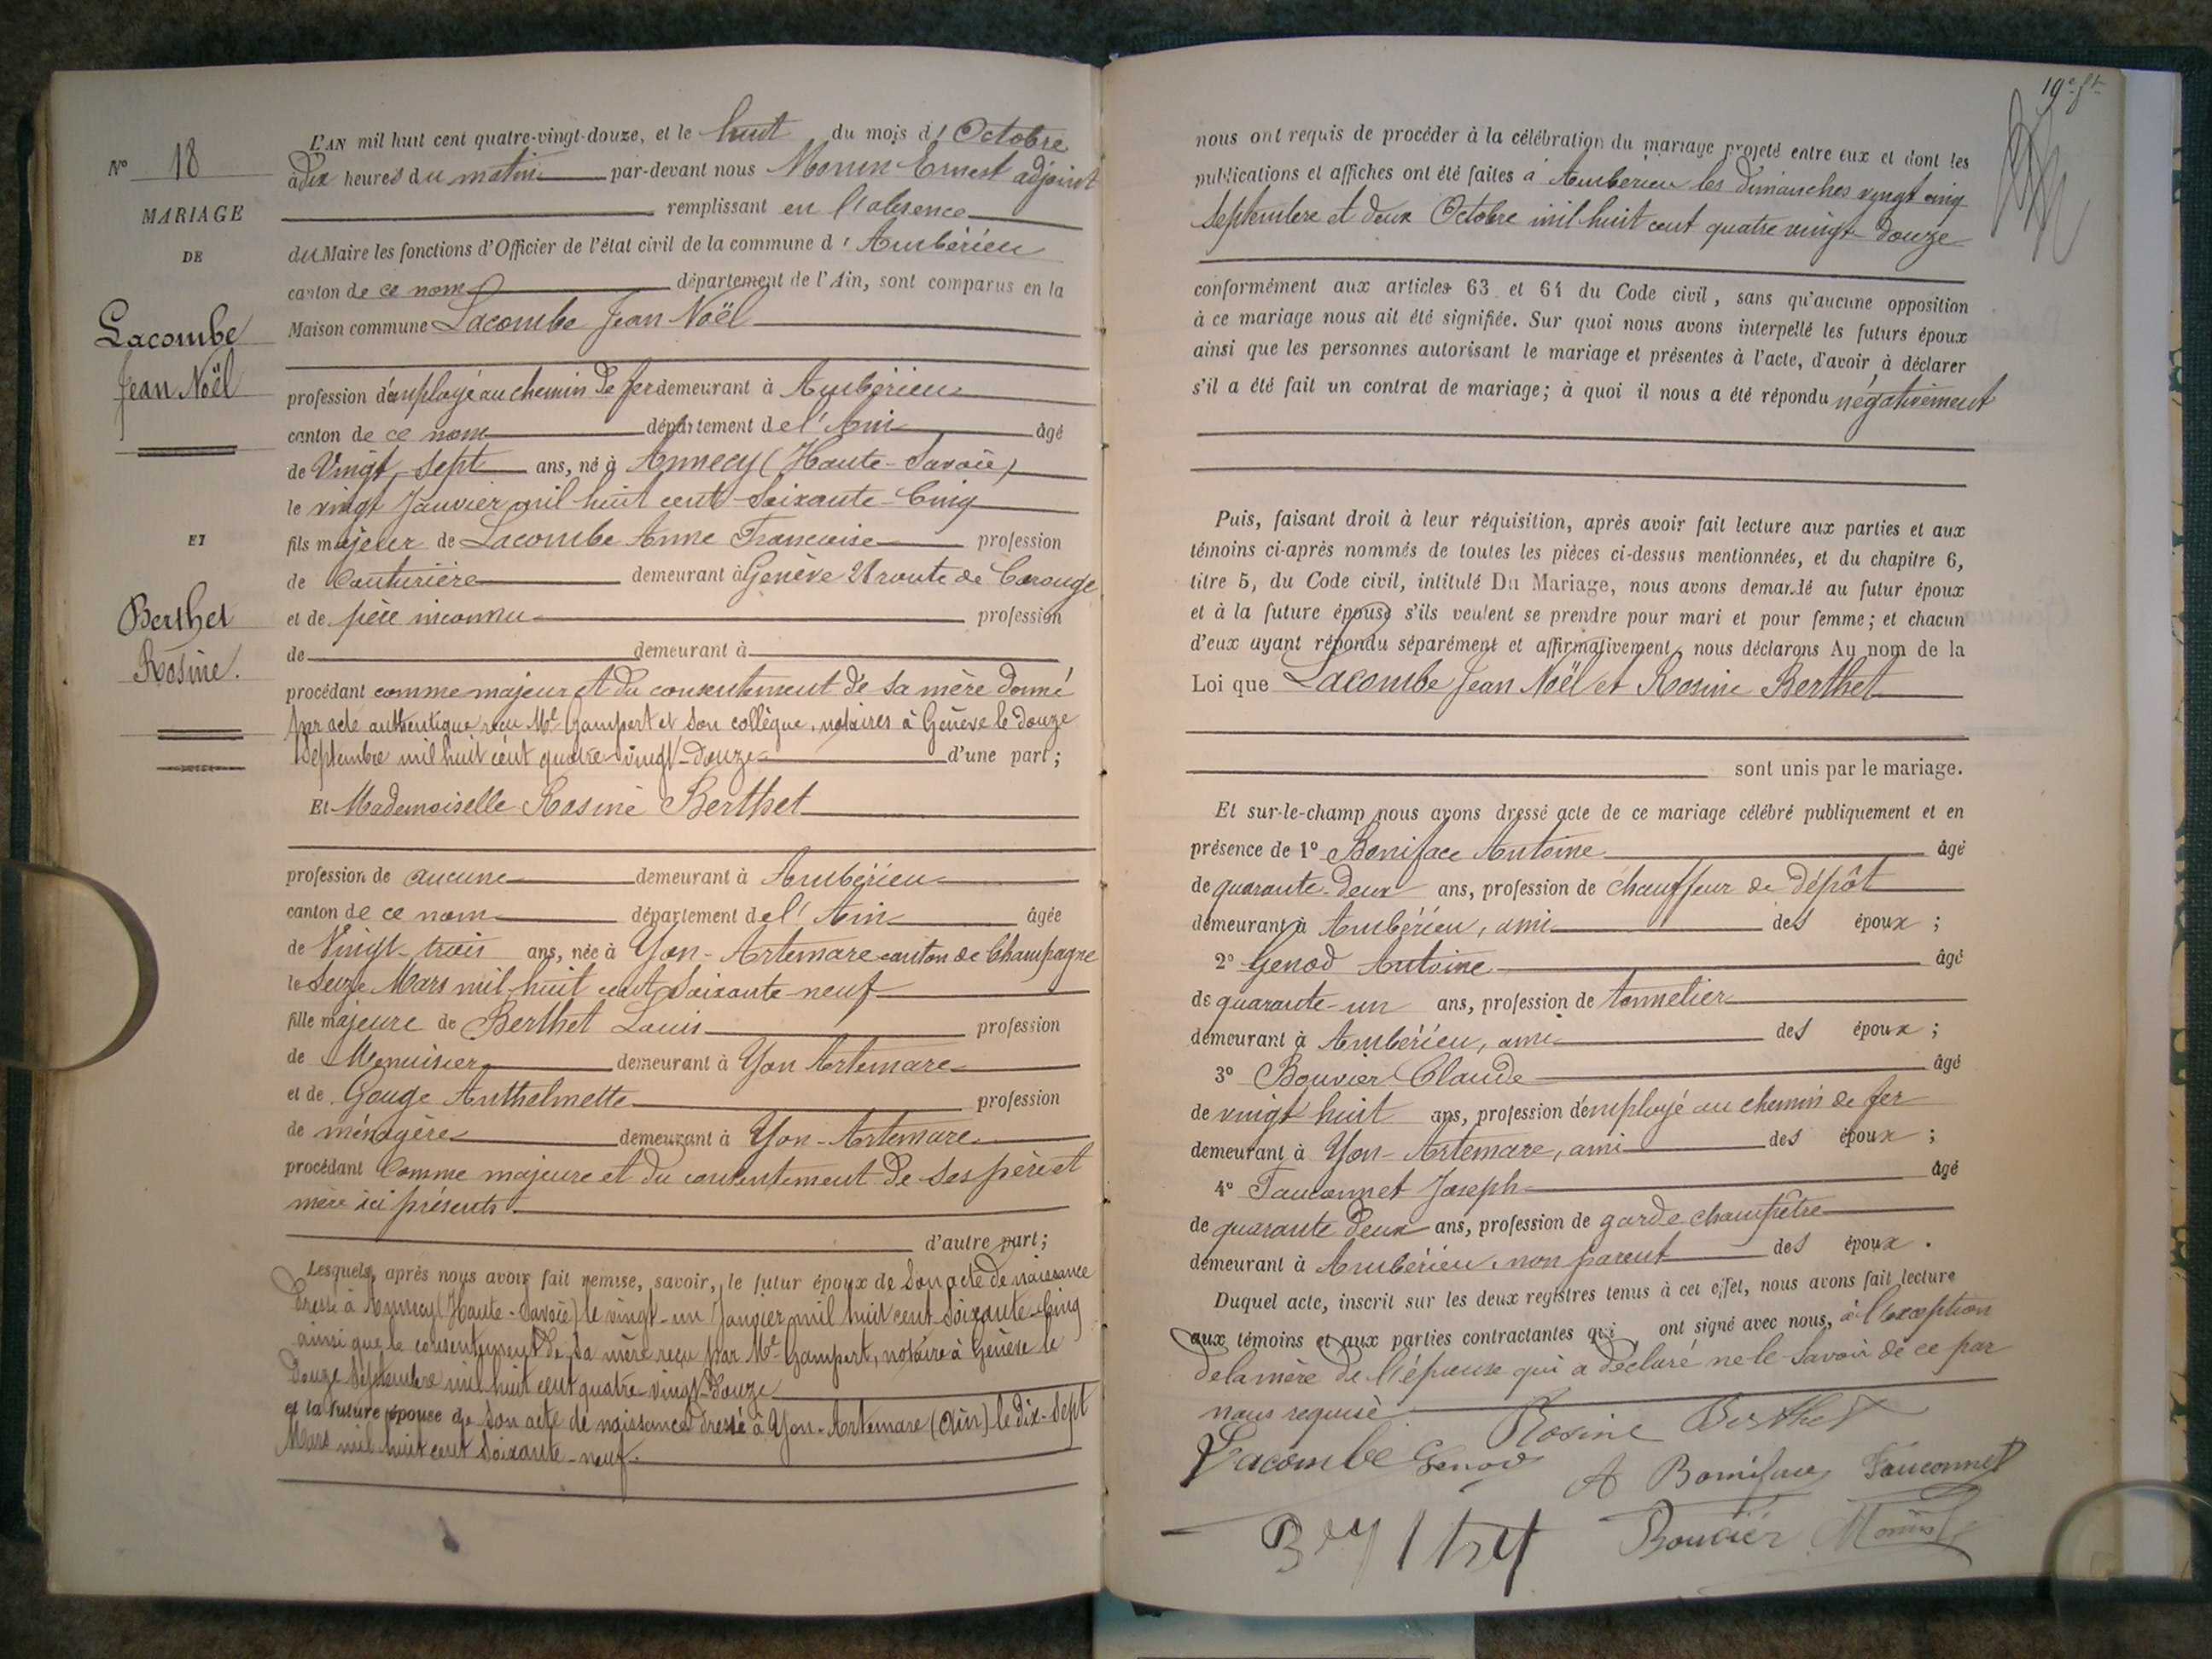 N° 18
MARIAGE
DE
Lacombe
Jean Noël
ET
Berthet
Rosine.
L'AN mil huit cent quatre-vingt-douze, et le huit du mois d'Octobre
à dix heures du matin par-devant nous Monin Ernest adjoint
remplissant en l'absence
du Maire les fonctions d'Officier de l'état civil de la commune d'Ambérieu
canton de ce nom département de l'Ain, sont comparus en la
Maison commune Lacombe Jean Noël
profession d'employé au chemin de fer demeurant à Ambérieu
canton de ce nom département de l'Ain âgé
de Vingt-sept ans, né à Annecy (Haute-Savoie)
le vingt Janvier mil huit cent soixante-Cinq
fils majeur de Lacombe Anne Francoise profession
de Couturière demeurant à Genève 21 route de Carouge
et de père inconnu profession
de demeurant à
procédant comme majeur et du consentement de sa mère donné
par acte authentique reçu Me Gampert et son collègue, notaires à Genève le douze
Septembre mil huit cent quatre-vingt-douze d'une part;
Et Mademoiselle Rosine Berthet
profession de aucune demeurant à Ambérieu
canton de ce nom département de l'Ain âgée
de Vingt-trois ans, née à Yon-Artemare canton de Champagne
le Seize Mars mil huit cent soixante-neuf
fille majeure de Berthet Louis profession
de Menuisier demeurant à Yon Artemare
et de Gouge Anthelmette profession
de ménagère demeurant à Yon-Artemare
procédant Comme majeure et du consentement de ses père et
mère ici présents
d'autre part;
Lesquels, après nous avoir fait remise, savoir, le futur époux de Son acte de naissance
dressé à Annecy (Haute-Savoie) le vingt-un Janvier mil huit cent soixante-cinq
ainsi que le consentement de sa mère reçu par Me Gampert, notaire à Genève le
douze Septembre mil huit cent quatre-vingt-douze
et la future épouse de Son acte de naissance dressé à Yon-Artemare (Ain) le dix-sept
Mars mil huit cent soixante-neuf.
19e ft
nous ont requis de procéder à la célébration du mariage projeté entre eux et dont les
publications et affiches ont été faites à Ambérieu les dimanches vingt cinq
Septembre et deux Octobre mil huit cent quatre vingt-douze
conformément aux articles 63 et 64 du Code civil, sans qu'aucune opposition
à ce mariage nous ait été signifiée. Sur quoi nous avons interpellé les futurs époux
ainsi que les personnes autorisant le mariage et présentes à l'acte, d'avoir à déclarer
s'il a été fait un contrat de mariage; à quoi il nous a été répondu négativement
Puis, faisant droit à leur réquisition, après avoir fait lecture aux parties et aux
témoins ci-après nommés de toutes les pièces ci-dessus mentionnées, et du chapitre 6,
titre 5, du Code civil, intitulé Du Mariage, nous avons demandé au futur époux
et à la future épouse s'ils veulent se prendre pour mari et pour femme; et chacun
d'eux ayant répondu séparément et affirmativement, nous déclarons Au nom de la
Loi que Lacombe Jean Noël et Rosine Berthet
sont unis par le mariage.
Et sur-le-champ nous avons dressé acte de ce mariage célébré publiquement et en
présence de 1° Boniface Antoine âgé
de quarante-deux ans, profession de chauffeur de dépôt
demeurant à Ambérieu, ami des époux;
2° Genod Antoine âgé
de quarante-un ans, profession de tonnelier
demeurant à Ambérieu, ami des époux;
3° Bouvier Claude âgé
de vingt huit ans, profession d'employé au chemin de fer
demeurant à Yon-Artemare, ami des époux;
4° Fauconnet Joseph âgé
de quarante deux ans, profession de garde champêtre
demeurant à Ambérieu, non parent des époux.
Duquel acte, inscrit sur les deux registres tenus à cet effet, nous avons fait lecture
aux témoins et aux parties contractantes qui ont signé avec nous, à l'exception
de la mère de l'épouse qui a déclaré ne le savoir de ce par
nous requise
Rosine Berthet
Lacombe Genod A Boniface Fauconnet
Bouvier Monin